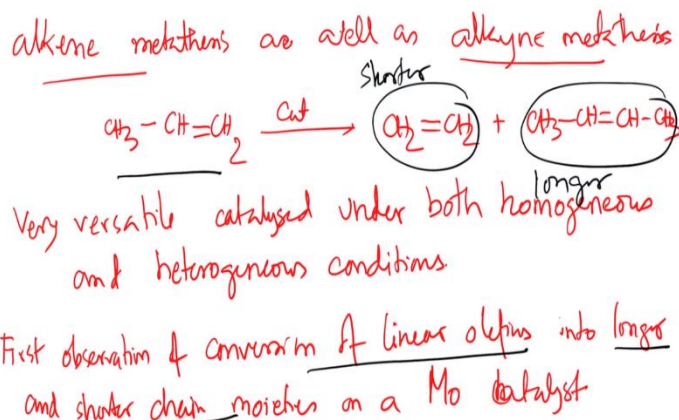 alkene metathesis as well as alkyne metathesis
shorter
CH₃-CH=CH₂ Cat → CH₂=CH₂ + CH₃-CH=CH-CH₃
longer
Very versatile catalysed under both homogeneous
and heterogeneous conditions.
First observation of conversion of linear olefins into longer
and shorter chain moieties on a Mo catalyst